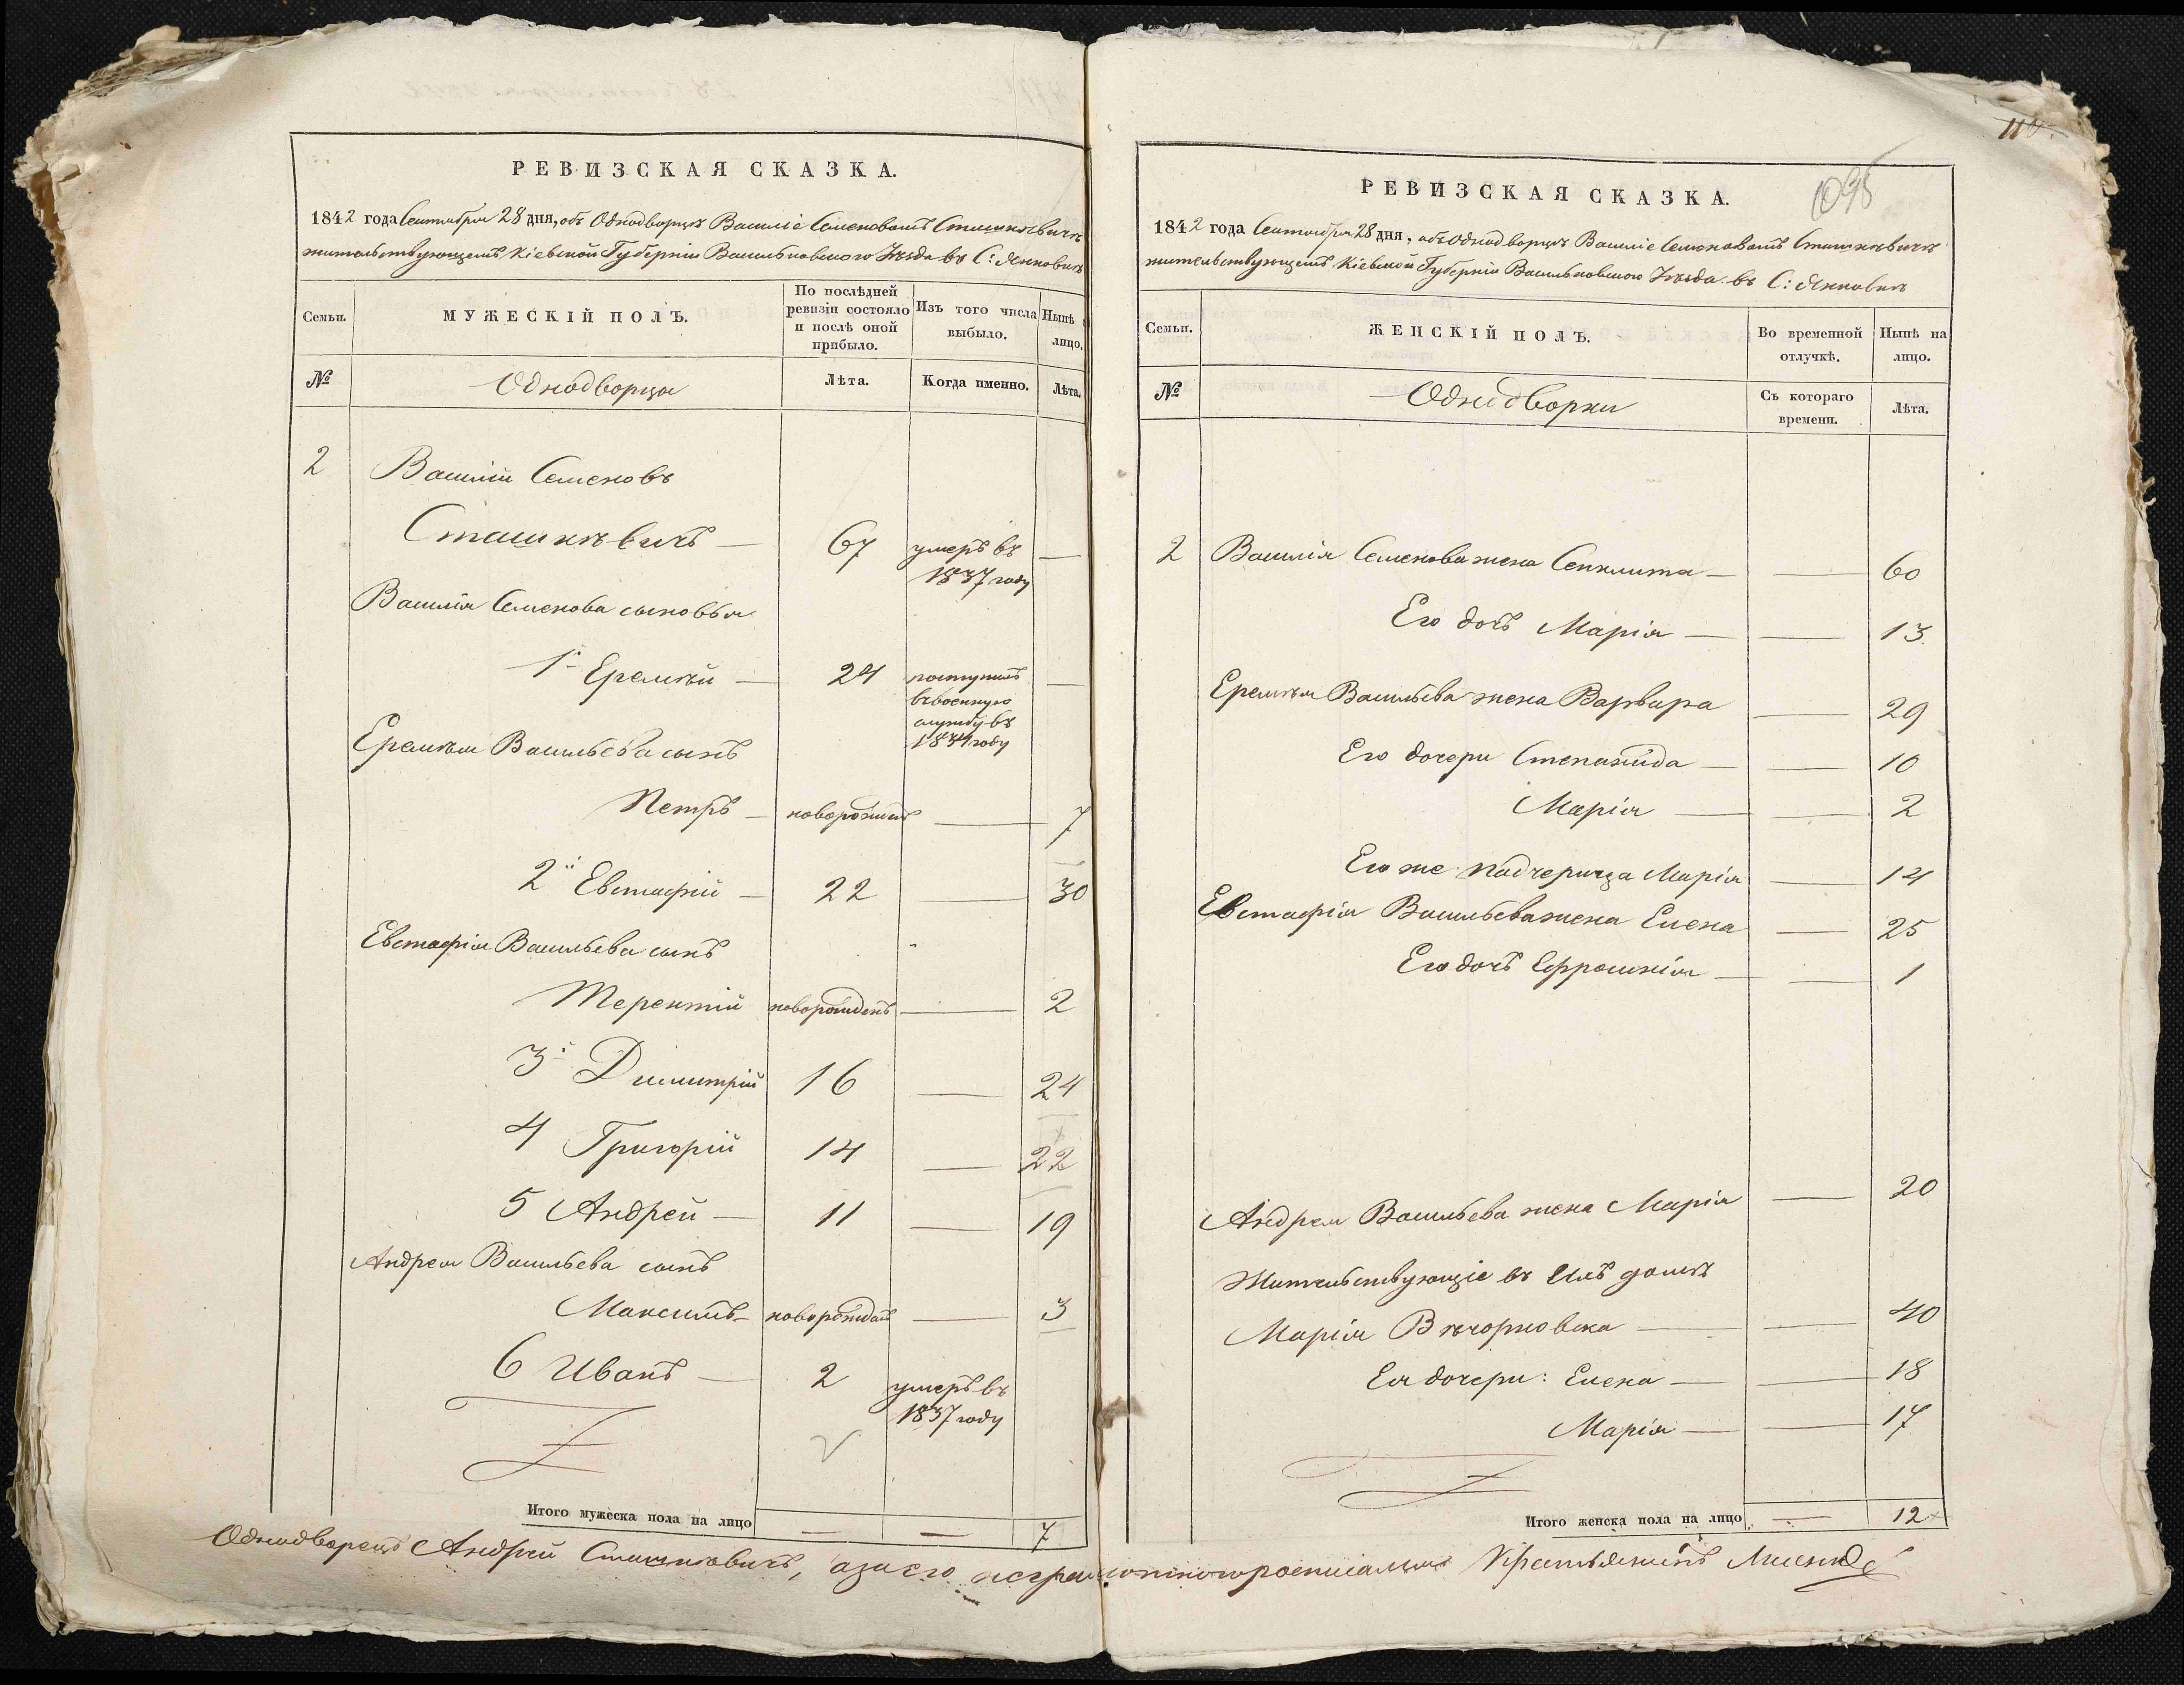 РЕВИЗСКАЯ СКАЗКА.
1842 года Сентября 28 дня, объ Однодворцѣ Василіе Семеновомъ Сташкѣвичѣ
жительствующемъ Кіевской Губерніи Васильковскаго Уѣзда въ С:
Семьи.
МУЖЕСКІЙ ПОЛЪ.
По послѣдней ревизіи состояло и послѣ оной прибыло.
Изъ того числа выбыло.
Нынѣ лицо.
№
Однодворцы
Лѣта.
Когда именно.
Лѣта.
2 Василій Семеновъ
Сташкѣвичъ — 67 умеръ въ 1837 году —
Василія Семенова сыновья
1й Еремѣй — 24 поступилъ въ военную службу въ 1834 году —
Еремѣя Васильева сынъ
Петръ — новорожденъ — 7
2й Евстафій — 22 — 30
Евстафія Васильева сынъ
Терентій новорожденъ — 2
3й Димитрій 16 — 24
4 Григорій 14 — 22
5 Андрей — 11 — 19
Андрея Васильева сынъ
Максимъ — новорожденъ — 3
6 Иванъ — 2 умеръ въ 1837 году
Итого мужеска пола на лицо — — 7
110
1095
РЕВИЗСКАЯ СКАЗКА.
1842 года Сентября 28 дня, объ Однодворцѣ Василіе Семеновомъ Сташкѣвичѣ
жительствующемъ Кіевской Губерніи Васильковскаго Уѣзда въ С:
Семьи.
ЖЕНСКІЙ ПОЛЪ.
Во временной отлучкѣ.
Нынѣ на лицо.
№
Однодворки
Съ котораго времени.
Лѣта.
2 Василія Семенова жена Сенклита — — 60
Его дочь Марія — — 13
Еремѣя Васильева жена Варвара — 29
Его дочери Степанида — — 10
Марія — — 2
Его же падчерица Марія — 14
Евстафія Васильева жена Елена — 25
Его дочь Ефросинія — — 1
Андрея Васильева жена Марія — 20
Жительствующіе въ ихъ домѣ
Марія Вѣчорковска — — 40
Ея дочери: Елена — — 18
Марія — — 17
Итого женска пола на лицо — 12
Однодворецъ Андрей Сташкѣвичъ, а за его